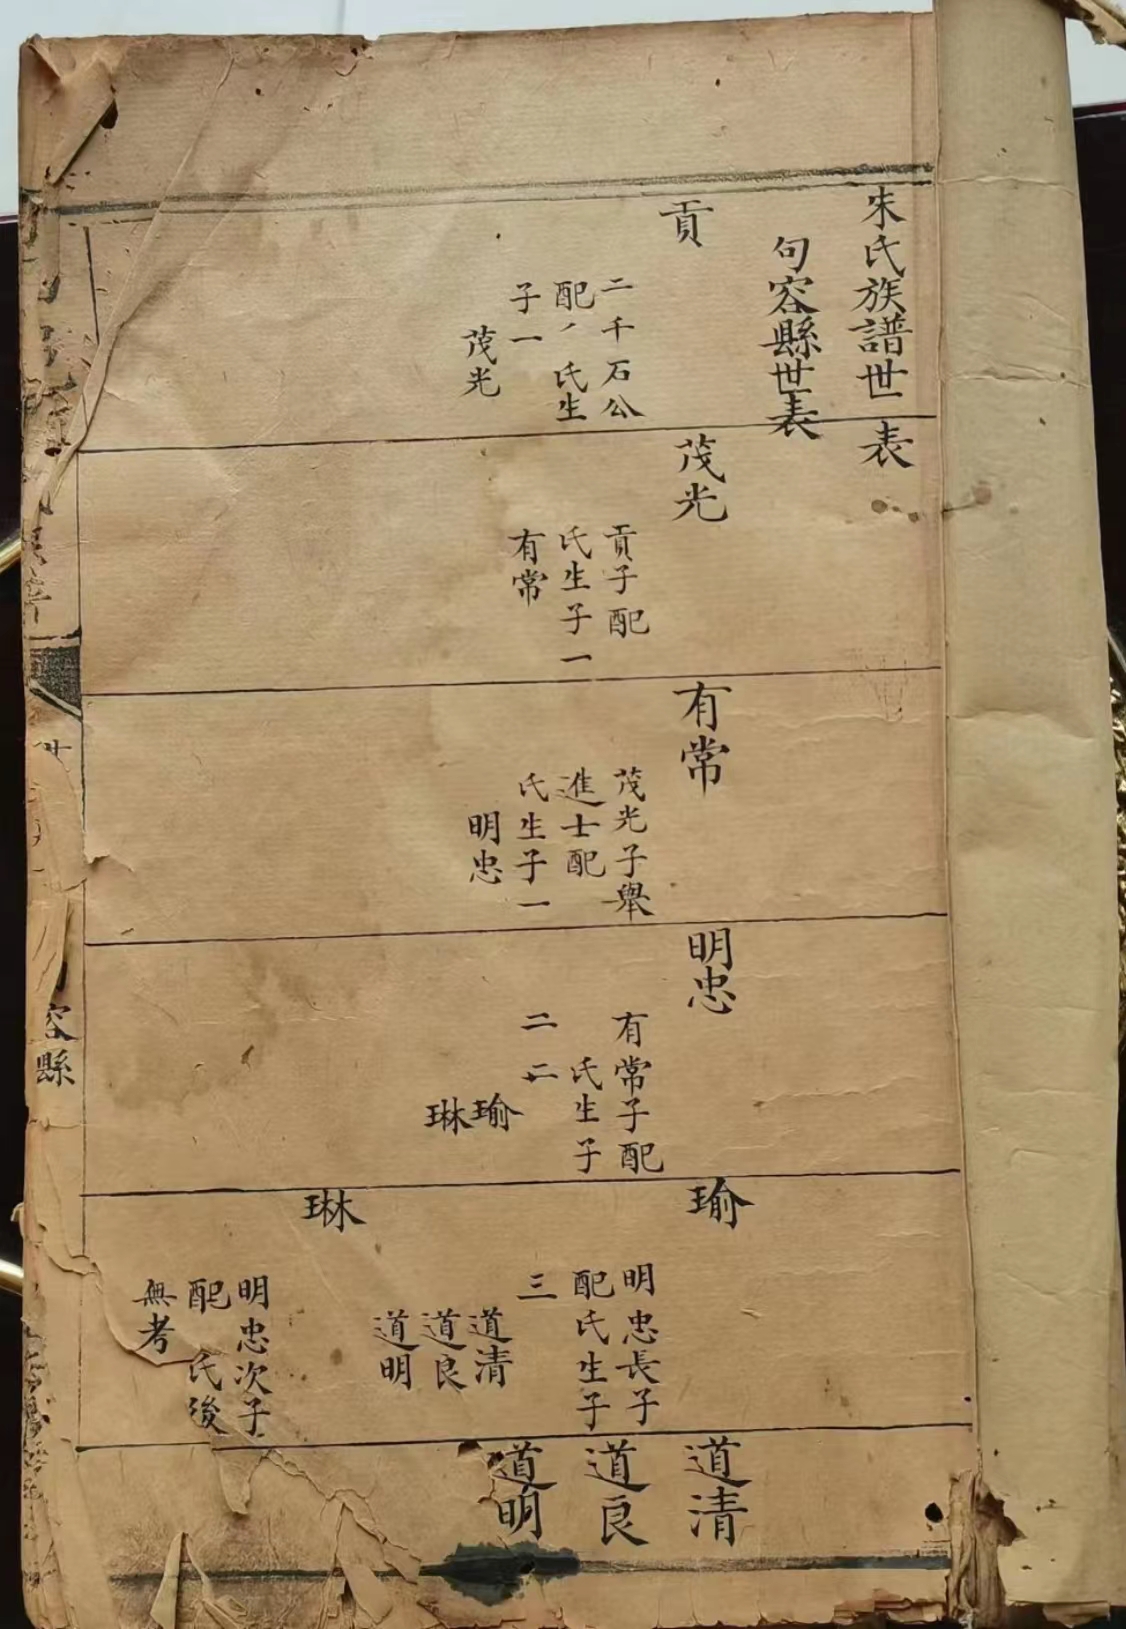 朱氏族譜世表
句容縣世表
貢
二千石公
配氏生
子一
茂光
茂光
貢子配
氏生子一
有常
有常
茂光子舉
進士配
氏生子一
明忠
明忠
有常子配
氏生子
二二
瑜
琳
瑜
明忠長子
配氏生子
三
道清
道良
道明
琳
明忠次子
配氏後
無考
道清
道良
道明
容縣